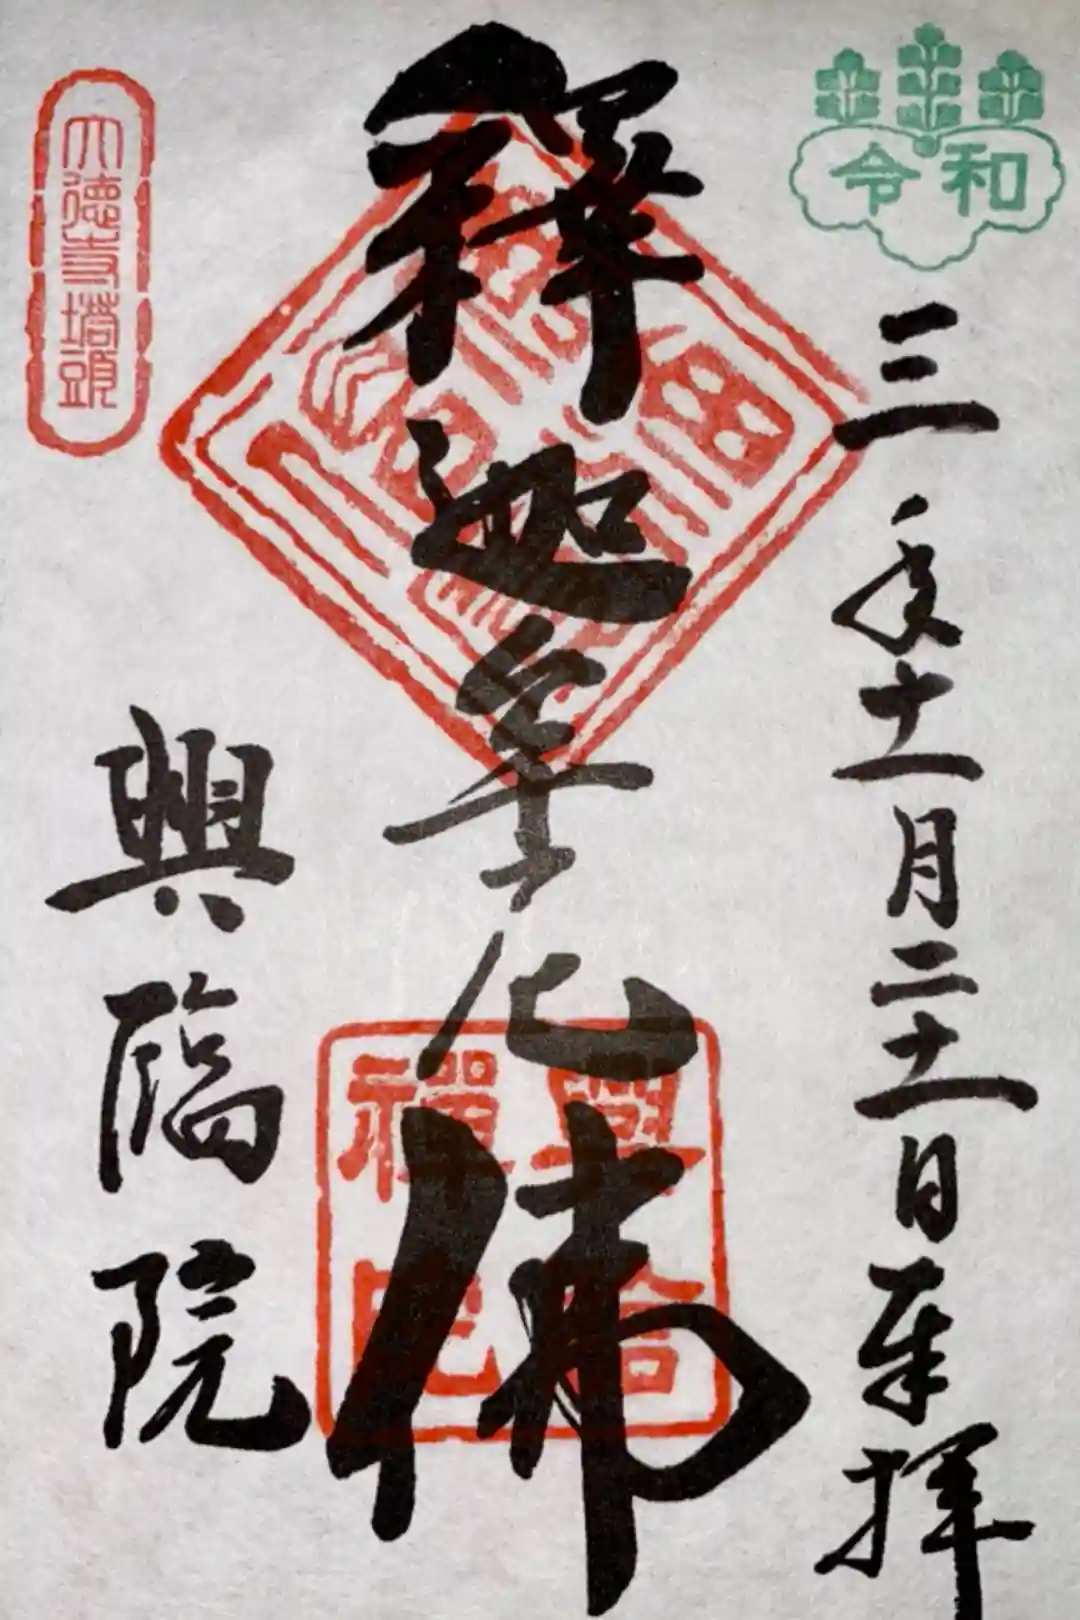 令和
三年十一月二十一日奉拝
釋迦牟尼佛
大徳寺塔頭
興臨院